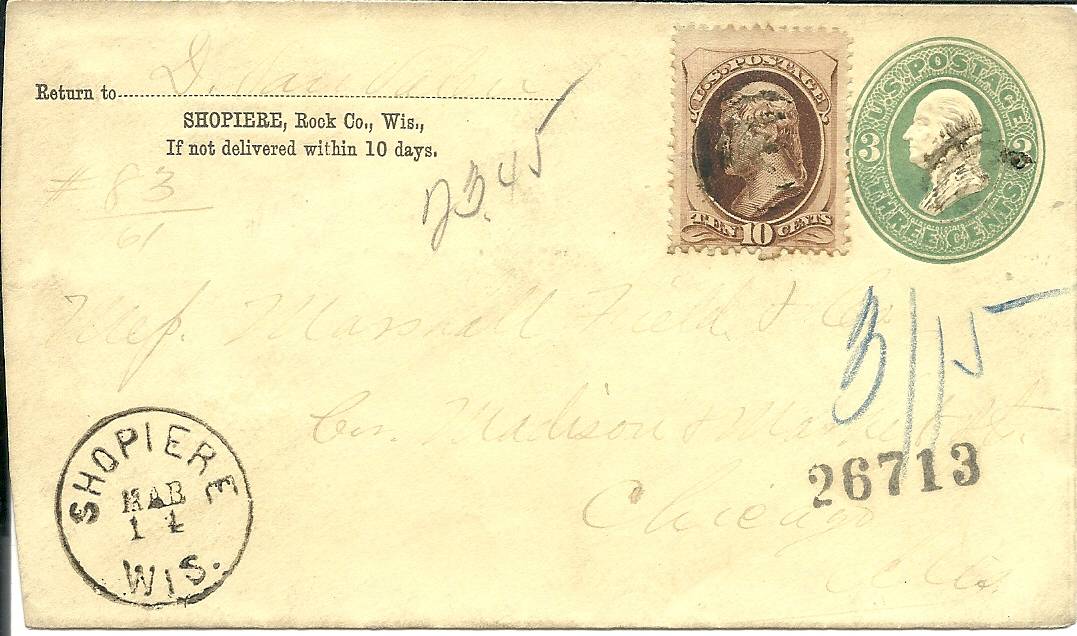 Return to
SHOPIERE, Rock Co., Wis.,
If not delivered within 10 days.
# 83
61
U.S. POSTAGE
TEN 10 CENTS
U.S. POSTAGE
3 3
THREE CENTS
Mess. Marshall Field & Co
Cor. Madison & Market St.
Chicago
Ills.
3/15
26713
SHOPIERE
MAR
14
WIS.